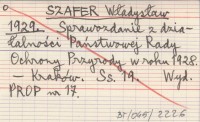 SZAFER Władysław
1929. Sprawozdanie z dzia-
łalności Państwowej Rady
Ochrony Przyrody w roku 1928.
— Kraków. Ss. 19. Wyd.
PROP nr 17.
35/045/2226